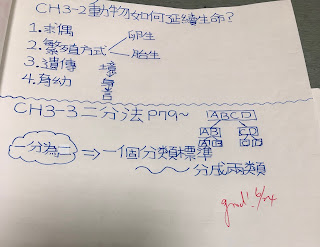 CH3-2動物如何延續生命?
1.求偶
2.繁殖方式 卵生
胎生
3.遺傳
4.育幼
CH3-3二分法 P79~
ABCD
AB CD
一分為二 ⇒ 一個分類標準
分成兩類
good! 6/24